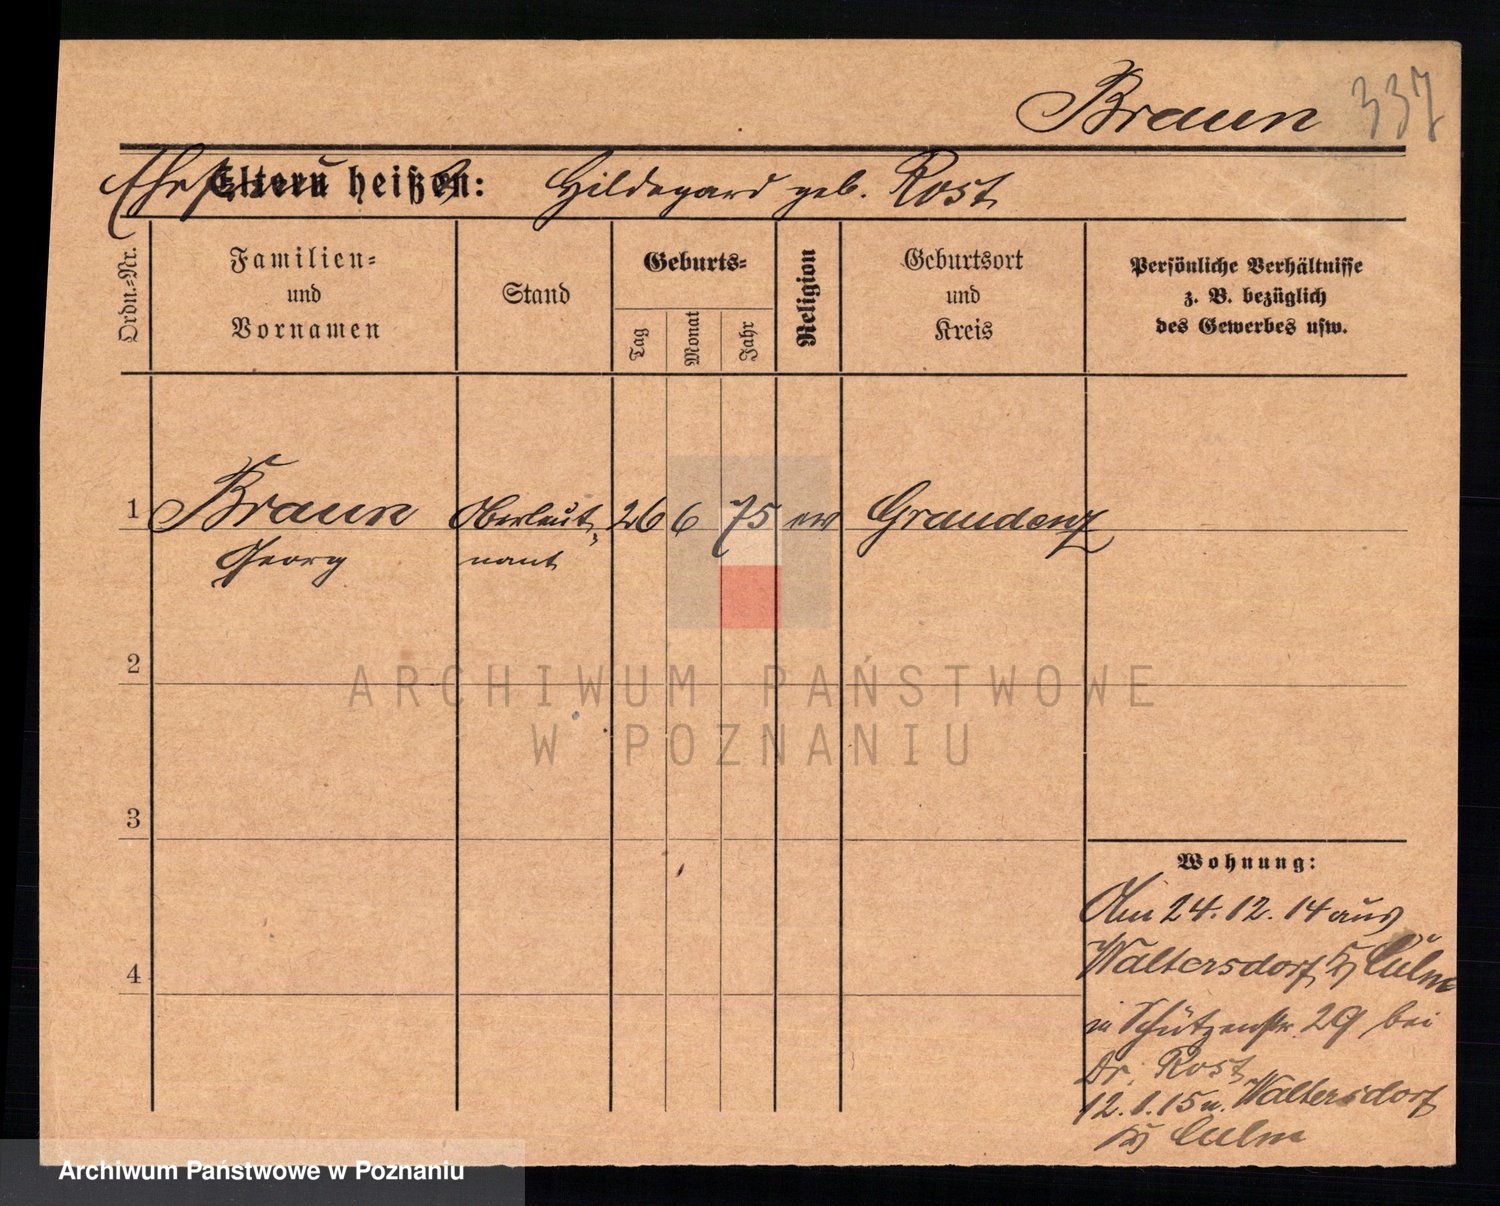 Braun 337
Ehefr. Eltern heißen: Hildegard geb. Rost
Ordn.-Nr.
Familien-
und
Vornamen
Stand
Geburts-
Tag
Monat
Jahr
Religion
Geburtsort
und
Kreis
Persönliche Verhältnisse
z. B. bezüglich
des Gewerbes usw.
1 Braun Oberleut- 26 6 75 ev Graudenz
Georg nant
2
3
4
Wohnung:
Am 24.12.14 aus
Waltersdorf Culm
in Schützenstr. 29 bei
Dr. Rost
12.1.15 n. Waltersdorf
Culm
ARCHIWUM PAŃSTWOWE
W POZNANIU
Archiwum Państwowe w Poznaniu